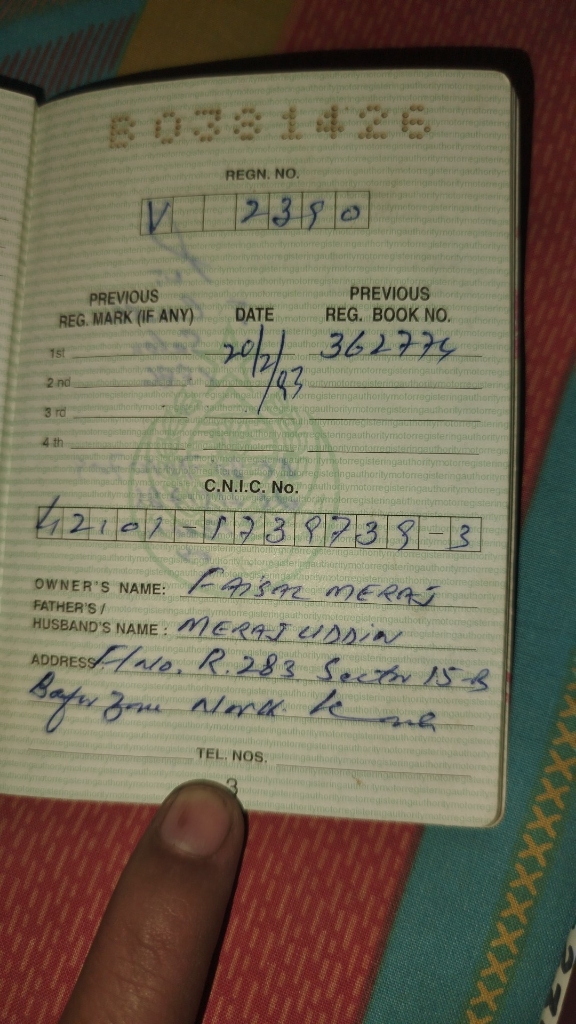 B0381426
REGN. NO.
V 2390
PREVIOUS REG. MARK (IF ANY) DATE PREVIOUS REG. BOOK NO.
1st 20/2/93 362774
2nd
3rd
4th
C.N.I.C. No.
42101-1739739-3
OWNER'S NAME: FAISAL MERAJ
FATHER'S / HUSBAND'S NAME: MERAJ UDDIN
ADDRESS H/No. R.283 Sector 15-B
Bafer Zone North K
TEL. NOS.
3